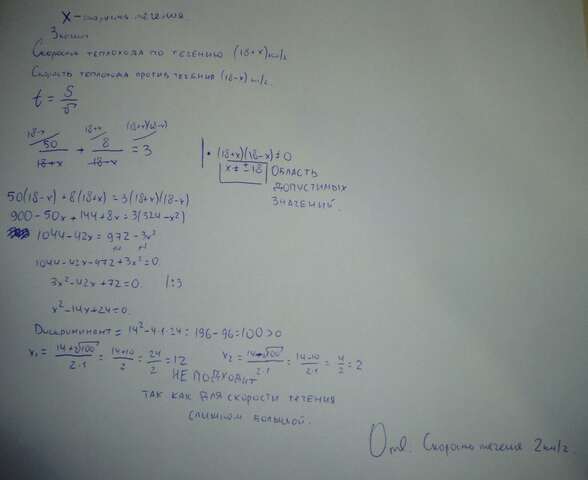 X - скорость течения.
Знаем
Скорость теплохода по течению (18+x) км/г
Скорость теплохода против течения (18-x) км/г.
t = S/υ
18-x 18+x (18+x)(18-x)
50/(18+x) + 8/(18-x) = 3
• (18+x)(18-x) ≠ 0
x ≠ ±18
ОБЛАСТЬ
ДОПУСТИМЫХ
ЗНАЧЕНИЙ.
50(18-x) + 8(18+x) = 3(18+x)(18-x)
900 - 50x + 144 + 8x = 3(324 - x²)
1044 - 42x = 972 - 3x²
1044 - 42x - 972 + 3x² = 0.
3x² - 42x + 72 = 0. |:3
x² - 14x + 24 = 0.
Дискриминант = 14² - 4·1·24 = 196 - 96 = 100 > 0
x₁ = (14+√100)/(2·1) = (14+10)/2 = 24/2 = 12 x₂ = (14-√100)/(2·1) = (14-10)/(2·1) = 4/2 = 2
НЕ ПОДХОДИТ
ТАК КАК ДЛЯ СКОРОСТИ ТЕЧЕНИЯ
СЛИШКОМ БОЛЬШОЙ.
Отв. Скорость течения 2 км/г.